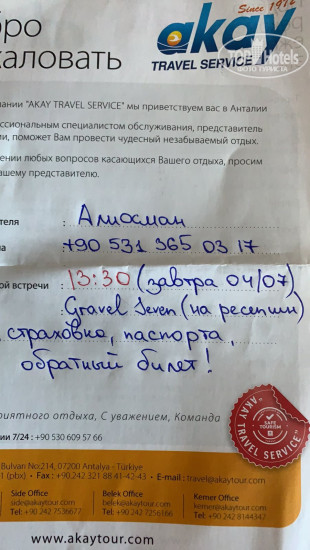 Since 1972
akay
TRAVEL SERVICE
TopHotels
ФОТО ТУРИСТА
бро
жаловать
пании "AKAY TRAVEL SERVICE" мы приветствуем вас в Анталии
ессиональным специалистом обслуживания, представитель
ии, поможет Вам провести чудесный незабываемый отдых.
ении любых вопросов касающихся Вашего отдыха, просим
ашему представителю.
теля : Алиосман
на : +90 531 365 03 17
ой встречи : 13:30 (завтра 04/07)
Gravel Seven (на ресепшн)
страховка, паспорта,
обратный билет!
риятного отдыха, С уважением, Команда
ии 7/24 : +90 530 609 57 66
AKAY TRAVEL SERVICE
SAFE TOURISM
Bulvarı No:214, 07200 Antalya - Türkiye
1 (pbx) • Fax : +90.242 321 88 41-42-43 • E-mail : travel@akaytour.com
Side Office
side@akaytour.com
Tel: +90 242 7536677
Belek Office
belek@akaytour.com
Tel: +90 242 7256166
Kemer Office
kemer@akaytour.com
Tel: +90 242 8144347
www.akaytour.com